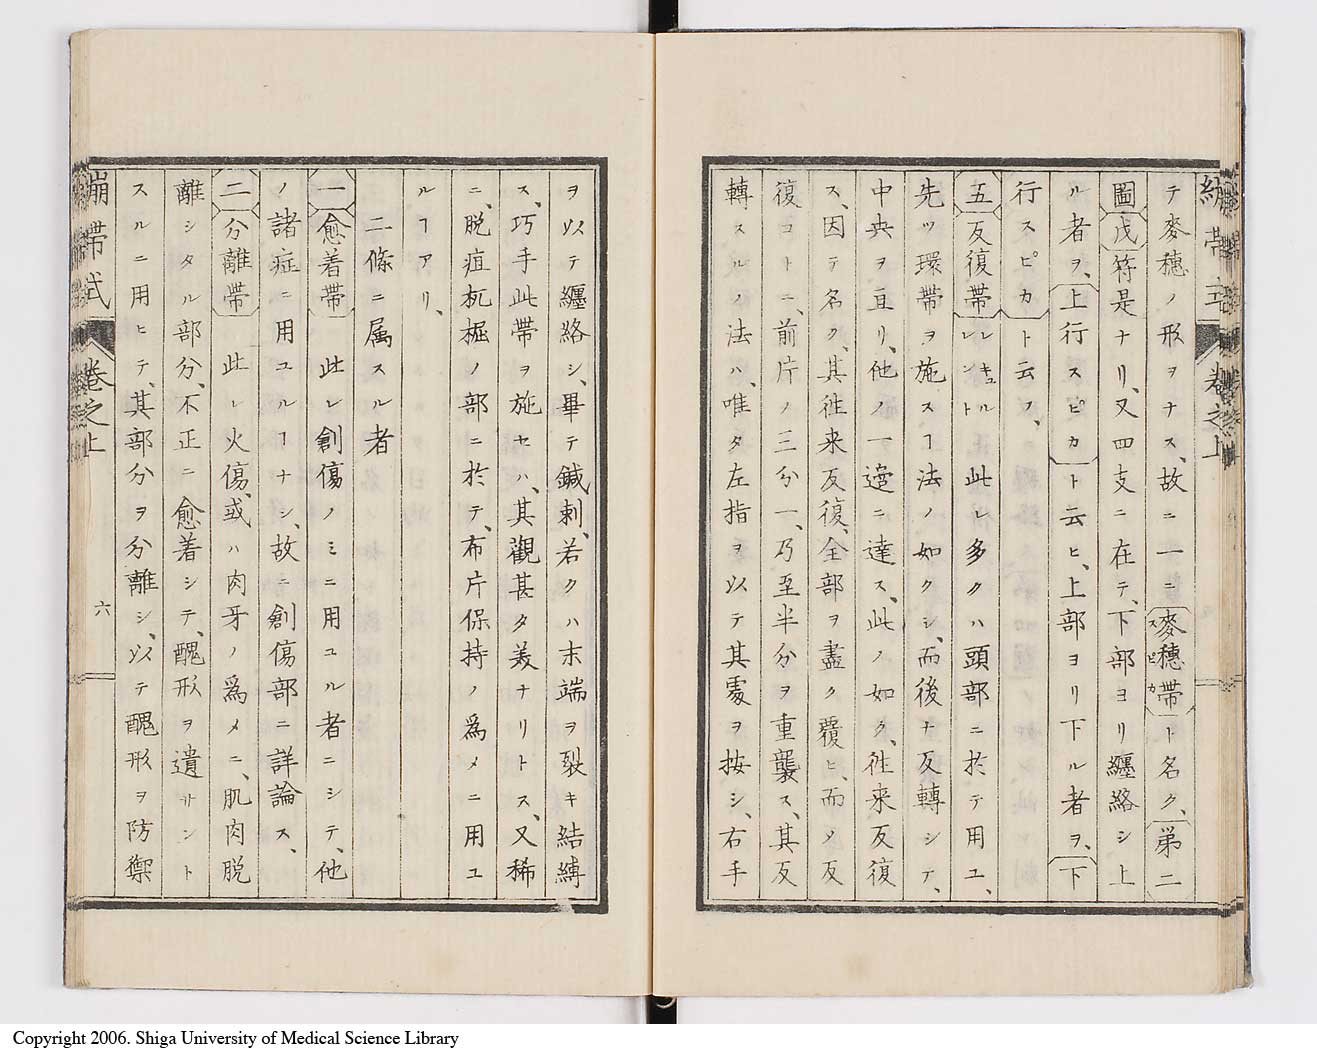 テ麥穗ノ形ヲナス、故ニ一ニ麥穗帶スピカト名ク、第二
圖戊符是ナリ、又四支ニ在テ、下部ヨリ纏絡シ上
ル者ヲ、上行スピカト云ヒ、上部ヨリ下ル者ヲ、下
行スピカト云フ、
五反復帶レキュルレント此レ多クハ頭部ニ於テ用ユ、
先ツ環帶ヲ施スヿ法ノ如クシ、而後ナ反轉シテ、
中央ヲ亘リ、他ノ一邊ニ達ス、此ノ如ク、徃来反復
ス、因テ名ク、其徃来反復、全部ヲ盡ク覆ヒ、而メ反
復コトニ、前片ノ三分一、乃至半分ヲ重襲ス、其反
轉スルノ法ハ、唯タ左指ヲ以テ其處ヲ按シ、右手
卷之上
ヲ以テ纏絡シ、畢テ鍼刺、若クハ末端ヲ裂キ結縛
ス、巧手此帶ヲ施セハ、其觀甚タ美ナリトス、又稀
ニ、脱疽杌掘ノ部ニ於テ、布片保持ノ爲メニ用ユ
ルヿアリ、
二條ニ属スル者
一愈着帶此レ創傷ノミニ用ユル者ニシテ、他
ノ諸症ニ用ユルヿナシ、故ニ創傷部ニ詳論ス、
二分離帶此レ火傷、或ハ肉牙ノ爲メニ、肌肉脱
離シタル部分、不正ニ愈着シテ、醜形ヲ遺サント
スルニ用ヒテ、其部分ヲ分離シ、以テ醜形ヲ防禦
繃帶式 卷之上 六
Copyright 2006. Shiga University of Medical Science Library